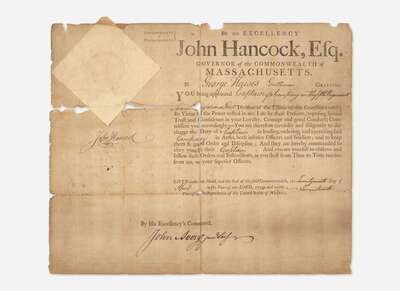 Commonwealth of Massachusetts.
By his EXCELLENCY
John Hancock, Esq.
GOVERNOR of the COMMONWEALTH of
MASSACHUSETTS.
To George Hawes Gentleman GREETING.
YOU being appointed Captain of a Company in the Regiment
Division of the Militia of this Commonwealth
By Virtue of the Power vested in me, I do by these Presents, (reposing special
Trust and Confidence in your Loyalty, Courage and good Conduct) Com-
mission you accordingly.---You are therefore carefully and diligently to dis-
charge the Duty of a Captain in leading, ordering and exercising said
Company in Arms, both inferior Officers and Soldiers; and to keep
them in good Order and Discipline: And they are hereby commanded to
obey you as their Captain And you are yourself to observe and
follow such Orders and Instructions, as you shall from Time to Time receive
from me, or your superior Officers.
John Hancock
GIVEN under my Hand, and the Seal of the said Commonwealth, the Day of
April in the Year of our LORD, and in the
of the United States of America.
By His Excellency's Command,
John Avery